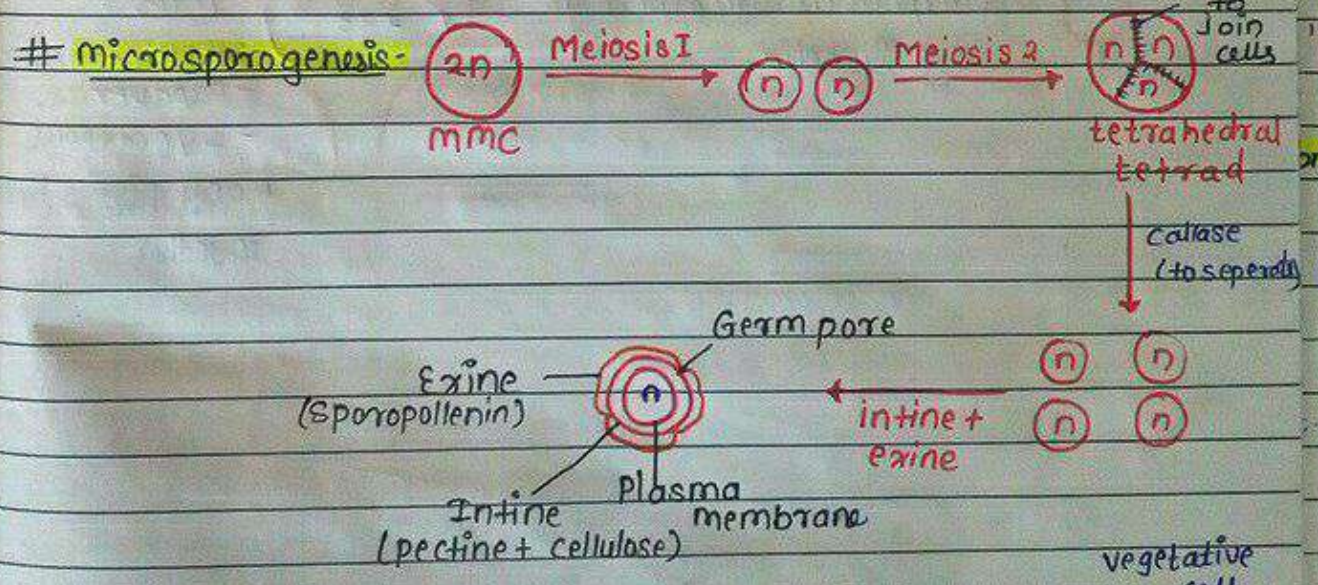 # microsporogenesis-
2n
MMC
Meiosis I
n n
Meiosis 2
n n n
to
Join
cells
tetrahedral
tetrad
callase
(to seperate)
n n
n n
intine +
exine
Germ pore
n
Exine
(Sporopollenin)
Intine
(pectine + cellulose)
Plasma
membrane
vegetative